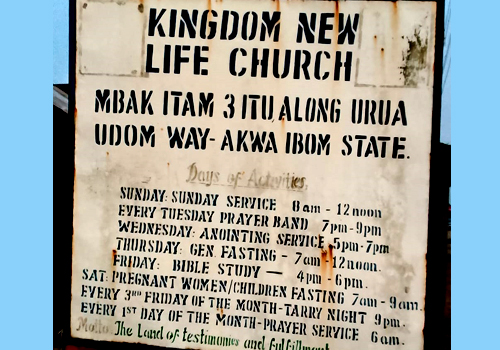 KINGDOM NEW
LIFE CHURCH
MBAK ITAM 3 ITU, ALONG URUA
UDOM WAY- AKWA IBOM STATE.
Days of Activities.
SUNDAY: SUNDAY SERVICE 8am - 12noon
EVERY TUESDAY PRAYER BAND 7pm - 9pm
WEDNESDAY: ANOINTING SERVICE 5pm-7pm
THURSDAY: GEN. FASTING - 7am - 12noon.
FRIDAY: BIBLE STUDY — 4pm - 6pm.
SAT: PREGNANT WOMEN/CHILDREN FASTING 7am - 9am.
EVERY 3RD FRIDAY OF THE MONTH-TARRY NIGHT 9pm.
EVERY 1ST DAY OF THE MONTH-PRAYER SERVICE 6am.
Motto: The Land of testimonies and fulfillment